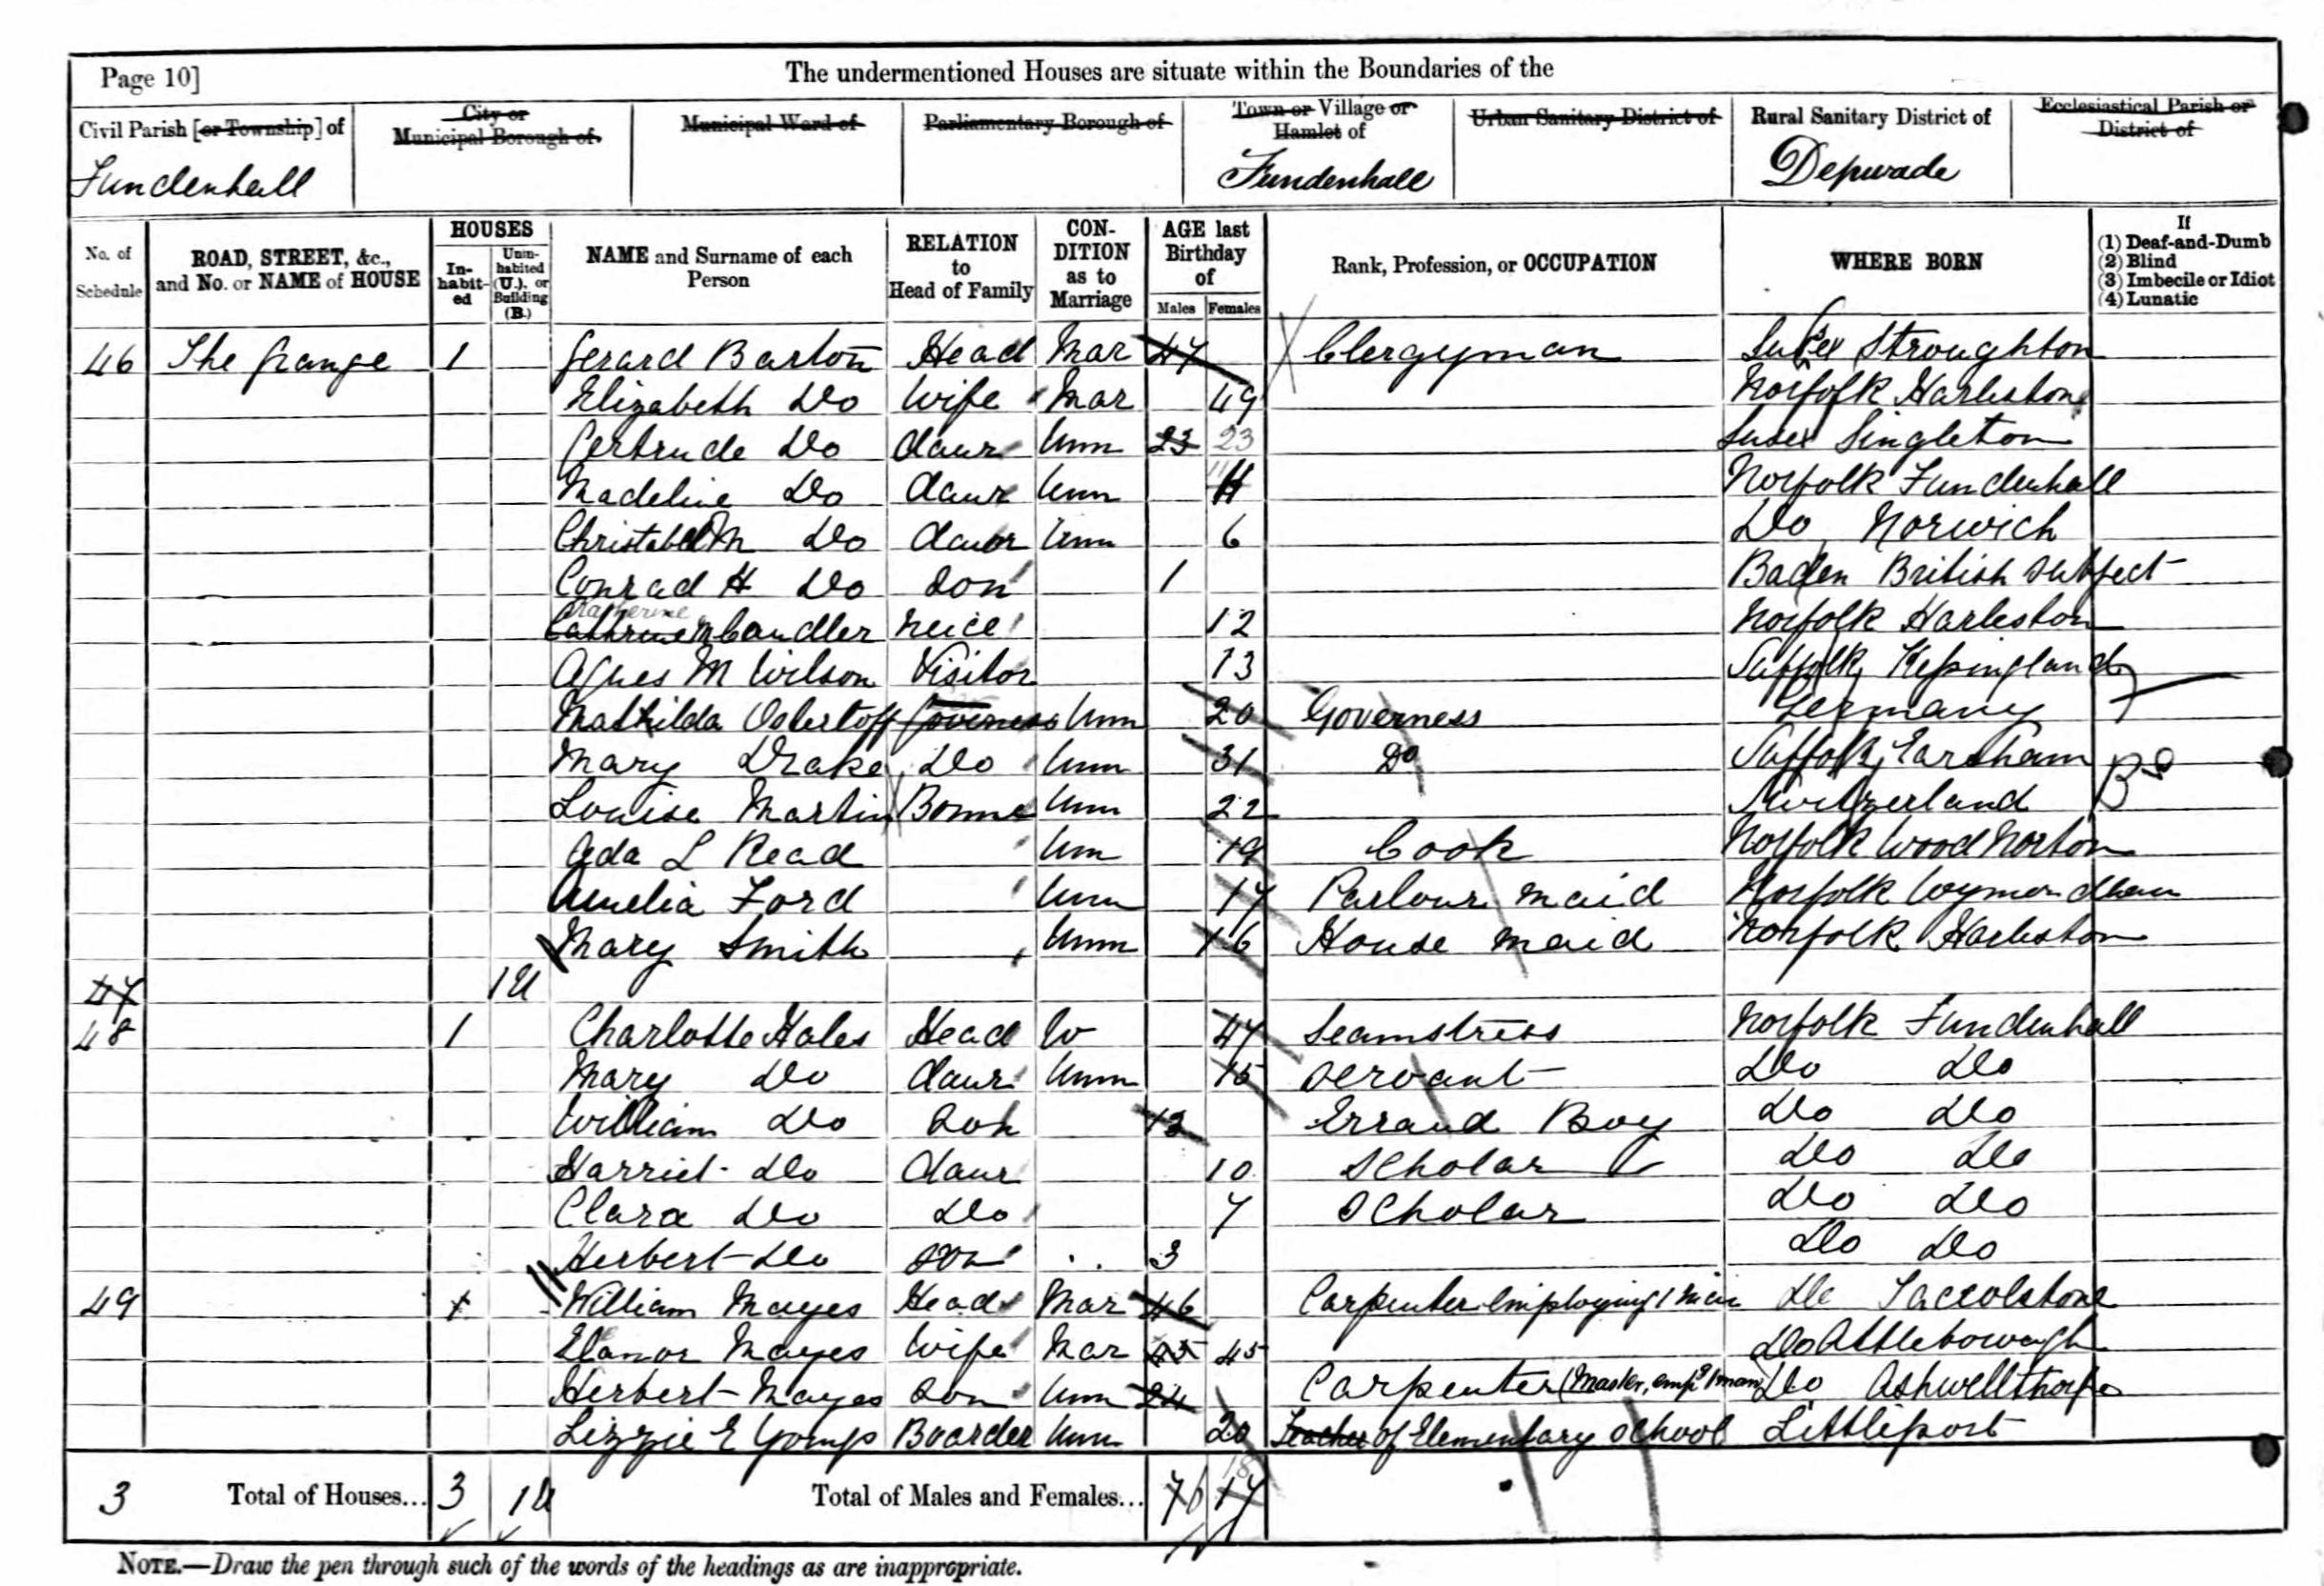 Page 10]
The undermentioned Houses are situate within the Boundaries of the
Civil Parish [or Township] of
City or Municipal Borough of
Municipal Ward of
Parliamentary Borough of
Town or Village or Hamlet of
Urban Sanitary District of
Rural Sanitary District of
Ecclesiastical Parish or District of
Fundenhall Fundenhall Depwade
No. of Schedule
ROAD, STREET, &c., and No. or NAME of HOUSE
HOUSES
Inhabited
Uninhabited (U.), or Building (B.)
NAME and Surname of each Person
RELATION to Head of Family
CONDITION as to Marriage
AGE last Birthday of
Males Females
Rank, Profession, or OCCUPATION
WHERE BORN
If
(1) Deaf-and-Dumb
(2) Blind
(3) Imbecile or Idiot
(4) Lunatic
46 The Grange 1 Gerard Barton Head Mar 47 Clergyman Sussex Stroughton
Elizabeth Do Wife Mar 49 Norfolk Harleston
Gertrude Do daur Unm 23 23 Susex Singleton
Madeline Do daur Unm 11 Norfolk Fundenhall
Christabel M Do daur Unm 6 Do Norwich
Conrad H Do Son 1 Baden British Subject
Catherine M Candler Neice 12 Norfolk Harleston
Agnes M Wilson Visitor 13 Suffolk Kessingland
Mathilda Governess Unm 20 Governess Germany
Mary Drake Do Unm 31 Do Suffolk Earsham
Louise Martin Bonne Unm 22 Switzerland B.S
Ada L Read Unm 19 Cook Norfolk Wood Norton
Amelia Ford Unm 17 Parlour Maid Norfolk Wymondham
Mary Smith Unm 16 House Maid Norfolk Harleston
47 1U
48 1 Charlotte Hales Head W 47 Seamstress Norfolk Fundenhall
Mary Do daur Unm 15 Servant Do Do
William Do Son 13 Errand Boy Do Do
Harriet Do daur 10 Scholar Do Do
Clara Do Do 7 Scholar Do Do
Herbert Do Son 3 Do Do
49 1 William Mayes Head Mar 46 Carpenter employing 1 Man Do Tacolstone
Elanor Mayes Wife Mar 45 45 Do Attleborough
Herbert Mayes Son Unm 24 Carpenter (Master, emp.g 1 man) Do Ashwellthorpe
Lizzie E Boarder Unm 20 Teacher of Elementary School Littleport
3 Total of Houses... 3 1U Total of Males and Females... 7 17 18
NOTE.—Draw the pen through such of the words of the headings as are inappropriate.